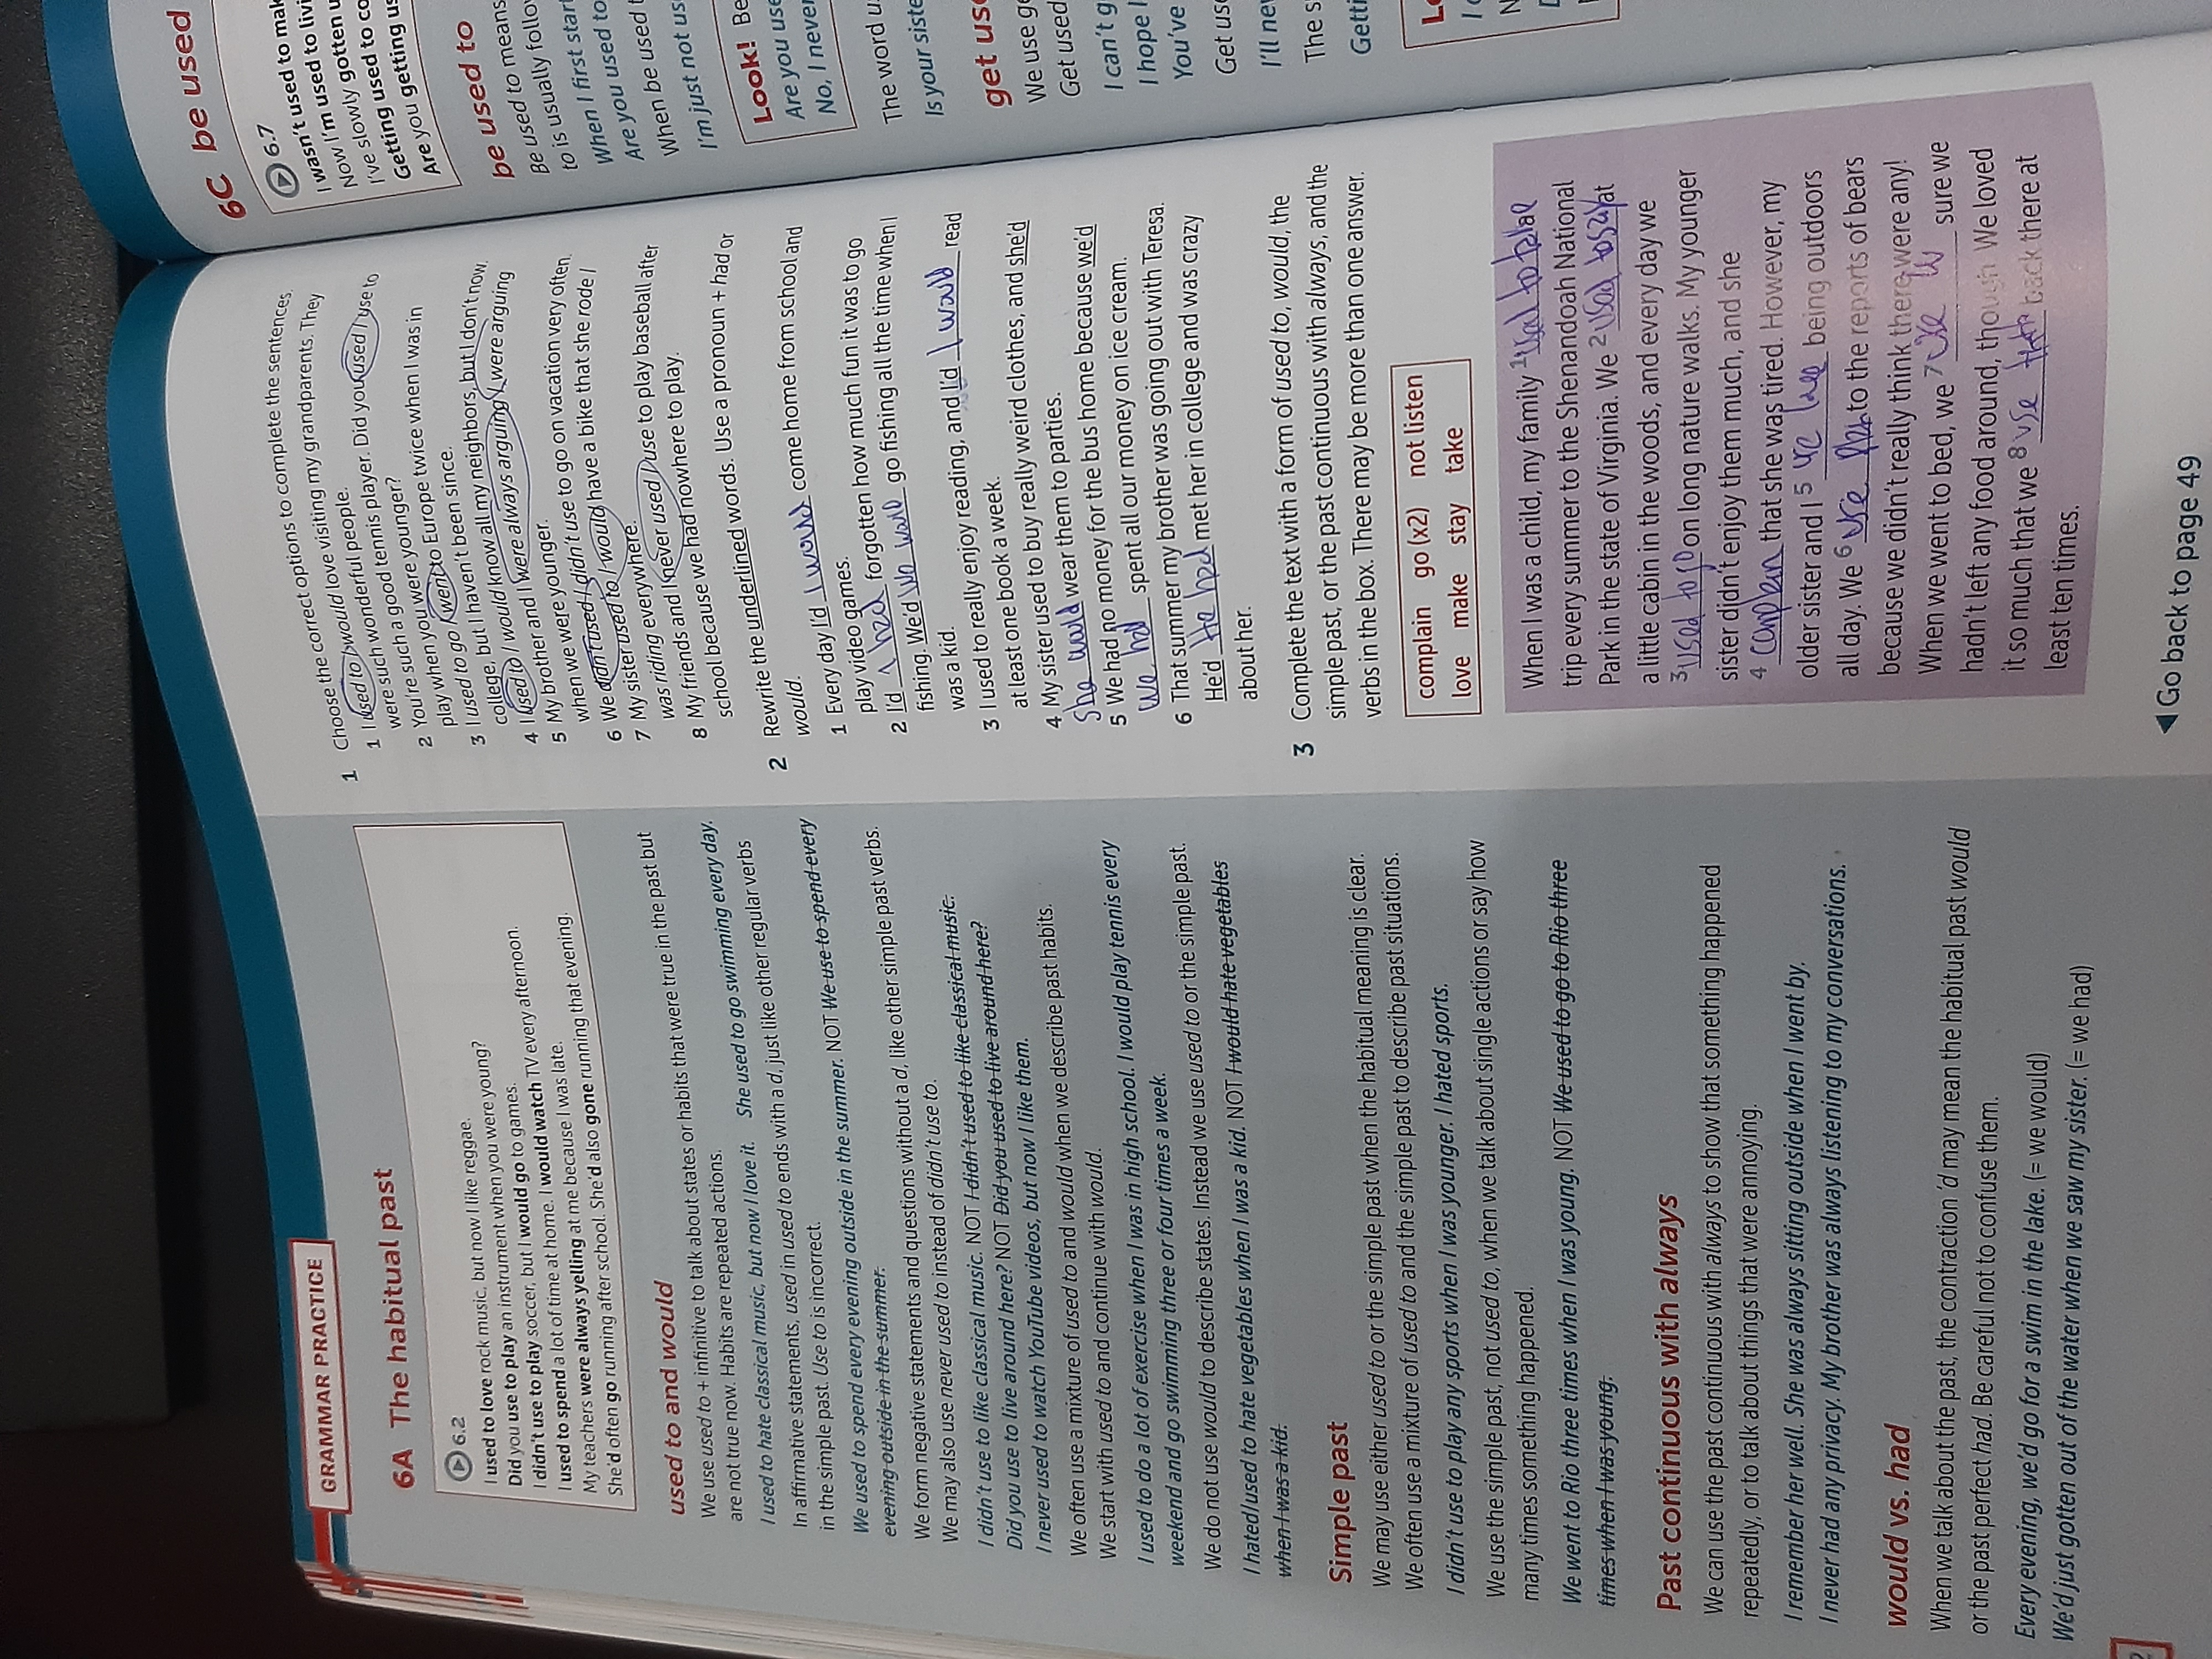 GRAMMAR PRACTICE
6A The habitual past
6.2
I used to love rock music, but now I like reggae.
Did you use to play an instrument when you were young?
I didn't use to play soccer, but I would go to games.
I used to spend a lot of time at home. I would watch TV every afternoon.
My teachers were always yelling at me because I was late.
She'd often go running after school. She'd also gone running that evening.
used to and would
We use used to + infinitive to talk about states or habits that were true in the past but
are not true now. Habits are repeated actions.
I used to hate classical music, but now I love it. She used to go swimming every day.
In affirmative statements, used in used to ends with a d, just like other regular verbs
in the simple past. Use to is incorrect.
We used to spend every evening outside in the summer. NOT We use to spend every
evening outside in the summer.
We form negative statements and questions without a d, like other simple past verbs.
We may also use never used to instead of didn't use to.
I didn't use to like classical music. NOT I didn't used to like classical music.
Did you use to live around here? NOT Did you used to live around here?
I never used to watch YouTube videos, but now I like them.
We often use a mixture of used to and would when we describe past habits.
We start with used to and continue with would.
I used to do a lot of exercise when I was in high school. I would play tennis every
weekend and go swimming three or four times a week.
We do not use would to describe states. Instead we use used to or the simple past.
I hated/used to hate vegetables when I was a kid. NOT I would hate vegetables
when I was a kid.
Simple past
We may use either used to or the simple past when the habitual meaning is clear.
We often use a mixture of used to and the simple past to describe past situations.
I didn't use to play any sports when I was younger. I hated sports.
We use the simple past, not used to, when we talk about single actions or say how
many times something happened.
We went to Rio three times when I was young. NOT We used to go to Rio three
times when I was young.
Past continuous with always
We can use the past continuous with always to show that something happened
repeatedly, or to talk about things that were annoying.
I remember her well. She was always sitting outside when I went by.
I never had any privacy. My brother was always listening to my conversations.
would vs. had
When we talk about the past, the contraction 'd may mean the habitual past would
or the past perfect had. Be careful not to confuse them.
Every evening, we'd go for a swim in the lake. (= we would)
We'd just gotten out of the water when we saw my sister. (= we had)
2
1 Choose the correct options to complete the sentences.
1 I used to / would love visiting my grandparents. They
were such wonderful people.
2 You're such a good tennis player. Did you used / use to
play when you were younger?
3 I used to go / went to Europe twice when I was in
college, but I haven't been since.
4 I used to / would know all my neighbors, but I don't now.
5 My brother and I were always arguing / were arguing
when we were younger.
6 We didn't used / didn't use to go on vacation very often.
7 My sister used to / would have a bike that she rode /
was riding everywhere.
8 My friends and I never used / use to play baseball after
school because we had nowhere to play.
2 Rewrite the underlined words. Use a pronoun + had or
would.
1 Every day I'd I would come home from school and
play video games.
2 I'd I had forgotten how much fun it was to go
fishing. We'd We would go fishing all the time when I
was a kid.
3 I used to really enjoy reading, and I'd I would read
at least one book a week.
4 My sister used to buy really weird clothes, and she'd
She would wear them to parties.
5 We had no money for the bus home because we'd
We had spent all our money on ice cream.
6 That summer my brother was going out with Teresa.
He'd He had met her in college and was crazy
about her.
3 Complete the text with a form of used to, would, the
simple past, or the past continuous with always, and the
verbs in the box. There may be more than one answer.
complain go (x2) not listen
love make stay take
When I was a child, my family 1 used to take a
trip every summer to the Shenandoah National
Park in the state of Virginia. We 2 used to at
a little cabin in the woods, and every day we
3 used to go on long nature walks. My younger
sister didn't enjoy them much, and she
4 that she was tired. However, my
older sister and I 5 being outdoors
all day. We 6 use to the reports of bears
because we didn't really think there were any!
When we went to bed, we 7 use sure we
hadn't left any food around, though. We loved
it so much that we 8 use back there at
least ten times.
Go back to page 49
6C be used
6.7
I wasn't used to mak
Now I'm used to livi
I've slowly gotten u
Getting used to co
Are you getting us
be used to
Be used to means
to is usually follo
When I first start
Are you used to
When be used t
I'm just not us
Look! Be
Are you use
No, I never
The word u
Is your siste
get use
We use ge
Get used
I can't g
I hope I
You've
Get use
I'll nev
The s
Getti